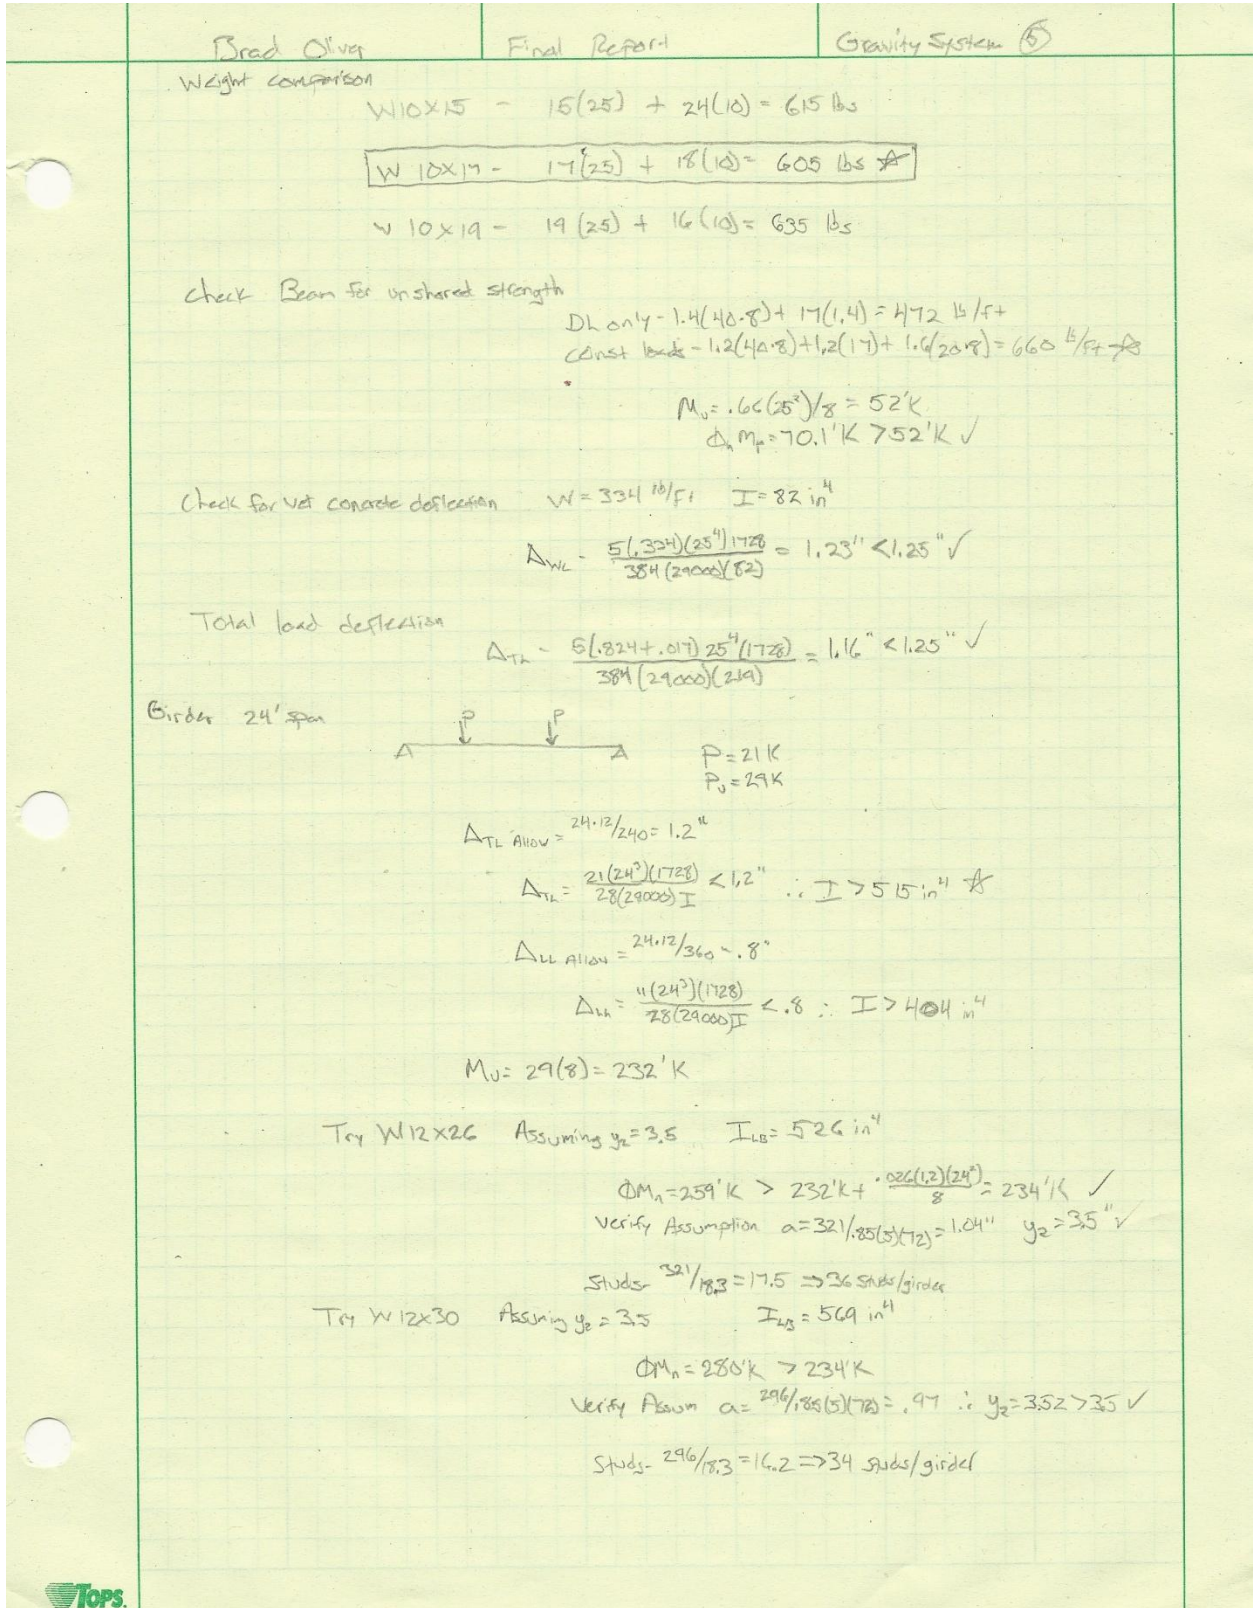 Brad Oliver Final Report Gravity System 5
Weight comparison
W10X15 - 15(25) + 24(10) = 615 lbs
W 10X17 - 17(25) + 18(10) = 605 lbs ☆
W 10X19 - 19(25) + 16(10) = 635 lbs
Check Beam for unshored strength
DL only - 1.4(40·8) + 17(1.4) = 472 lb/ft
const loads - 1.2(40·8) + 1.2(17) + 1.6(20·8) = 660 lb/ft ☆
Mu = .66(25²)/8 = 52'K
ΦMp = 70.1'K > 52'K ✓
Check for wet concrete deflection W = 334 lb/ft I = 82 in⁴
ΔWC - 5(.334)(25⁴)1728 / 384(29000)(82) = 1.23" < 1.25" ✓
Total load deflection
ΔTL - 5(.824+.017) 25⁴(1728) / 384(29000)(219) = 1.16" < 1.25" ✓
Girder 24' span
P P
P = 21K
Pu = 29K
ΔTL Allow = 24·12/240 = 1.2"
ΔTL = 21(24³)(1728) / 28(29000)I < 1.2" ∴ I > 515 in⁴ ☆
ΔLL Allow = 24·12/360 - .8"
ΔLL = 11(24³)(1728) / 28(29000)I < .8 ∴ I > 404 in⁴
Mu = 29(8) = 232'K
Try W12X26 Assuming y₂=3.5 ILB = 526 in⁴
ΦMn = 259'K > 232'K + .026(1.2)(24²)/8 = 234'K ✓
Verify Assumption a = 321/.85(5)(72) = 1.04" y₂ = 3.5" ✓
Studs- 321/18.3 = 17.5 => 36 studs/girder
Try W12X30 Assuming y₂ = 3.5 ILB = 569 in⁴
ΦMn = 280'K > 234'K
Verify Assum a = 296/.85(5)(72) = .97 ∴ y₂ = 3.52 > 3.5 ✓
Studs- 296/18.3 = 16.2 => 34 studs/girder
TOPS.